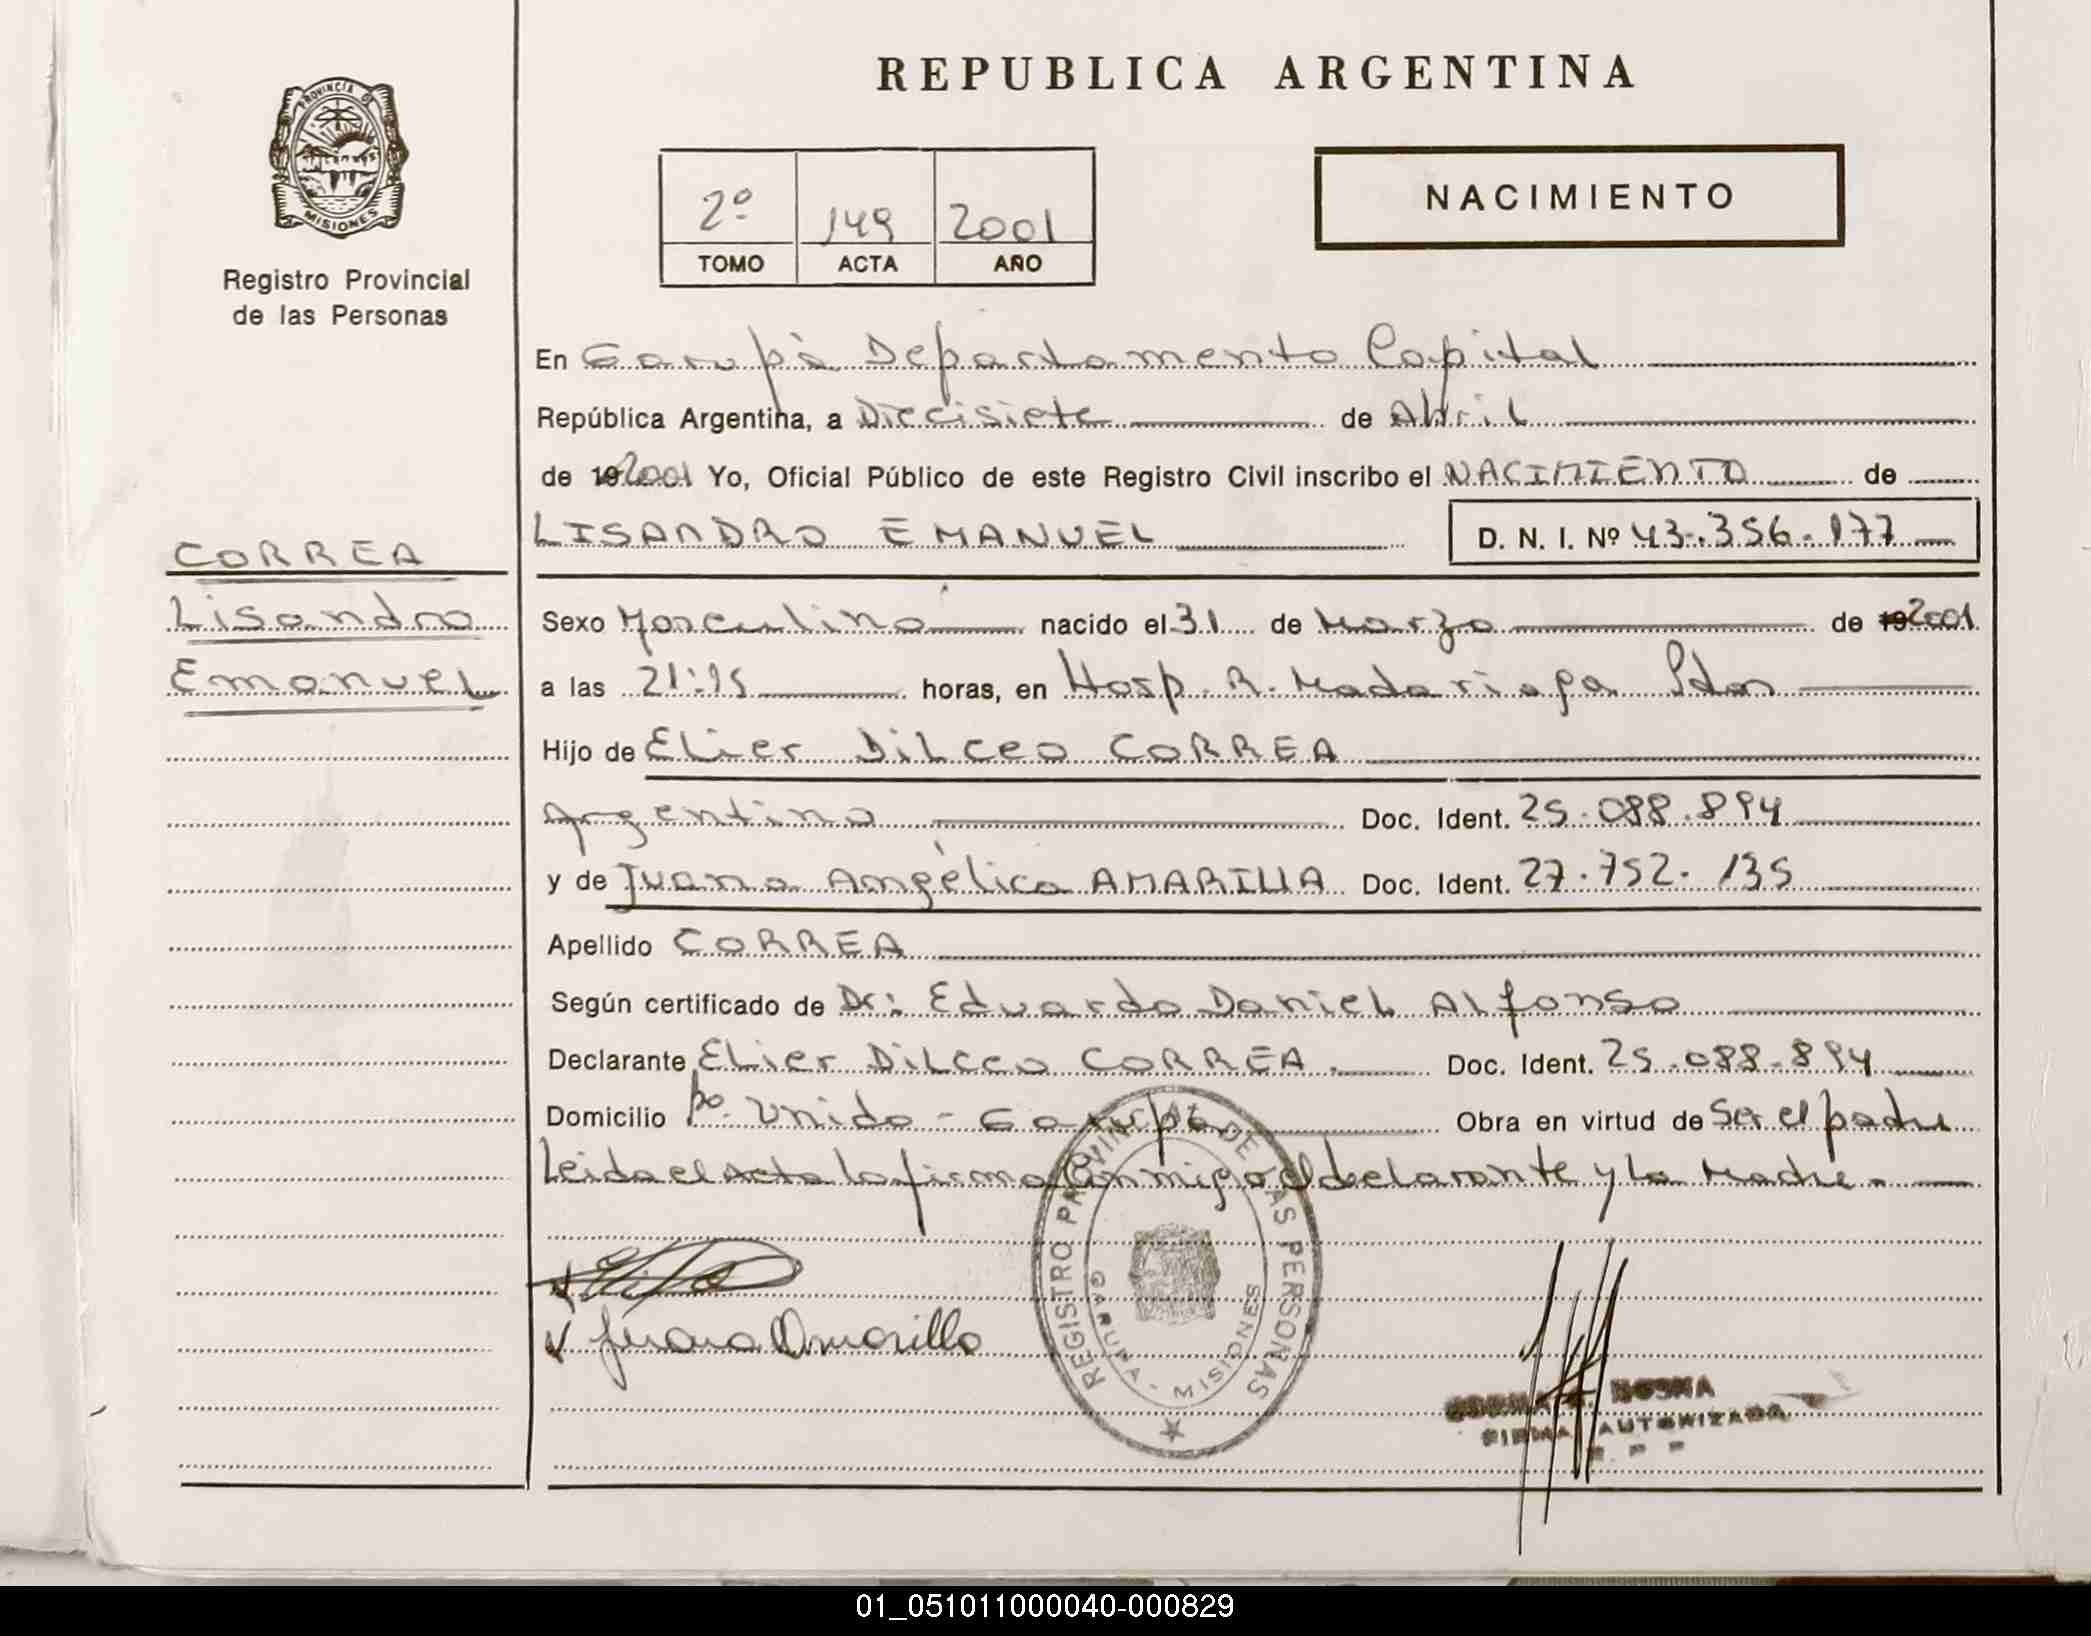 REPUBLICA ARGENTINA
PROVINCIA DE
MISIONES
Registro Provincial
de las Personas
2º 149 2001
TOMO ACTA AÑO
NACIMIENTO
En Garupá Departamento Capital
República Argentina, a Diecisiete de Abril
de 19 2001 Yo, Oficial Público de este Registro Civil inscribo el NACIMIENTO de
LISANDRO EMANUEL D. N. I. Nº 43.356.177
CORREA
Lisandro
Emanuel
Sexo Masculino nacido el 31 de Marzo de 19 2001
a las 21:15 horas, en Hosp. R. Madariaga Pdas
Hijo de Elier Dilceo CORREA
Argentino Doc. Ident. 25.088.894
y de Juana Angélica AMARILLA Doc. Ident. 27.752.135
Apellido CORREA
Según certificado de Dr: Eduardo Daniel Alfonso
Declarante Elier Dilceo CORREA. Doc. Ident. 25.088.894
Domicilio Bº. Unido - Garupá Obra en virtud de Ser el padre
Leida el Acta la firma Conmigo el declarante y la Madre.
Juana Amarilla
REGISTRO PROVINCIAL DE LAS PERSONAS
GARUPA - MISIONES
FIRMA AUTORIZADA
01_051011000040-000829